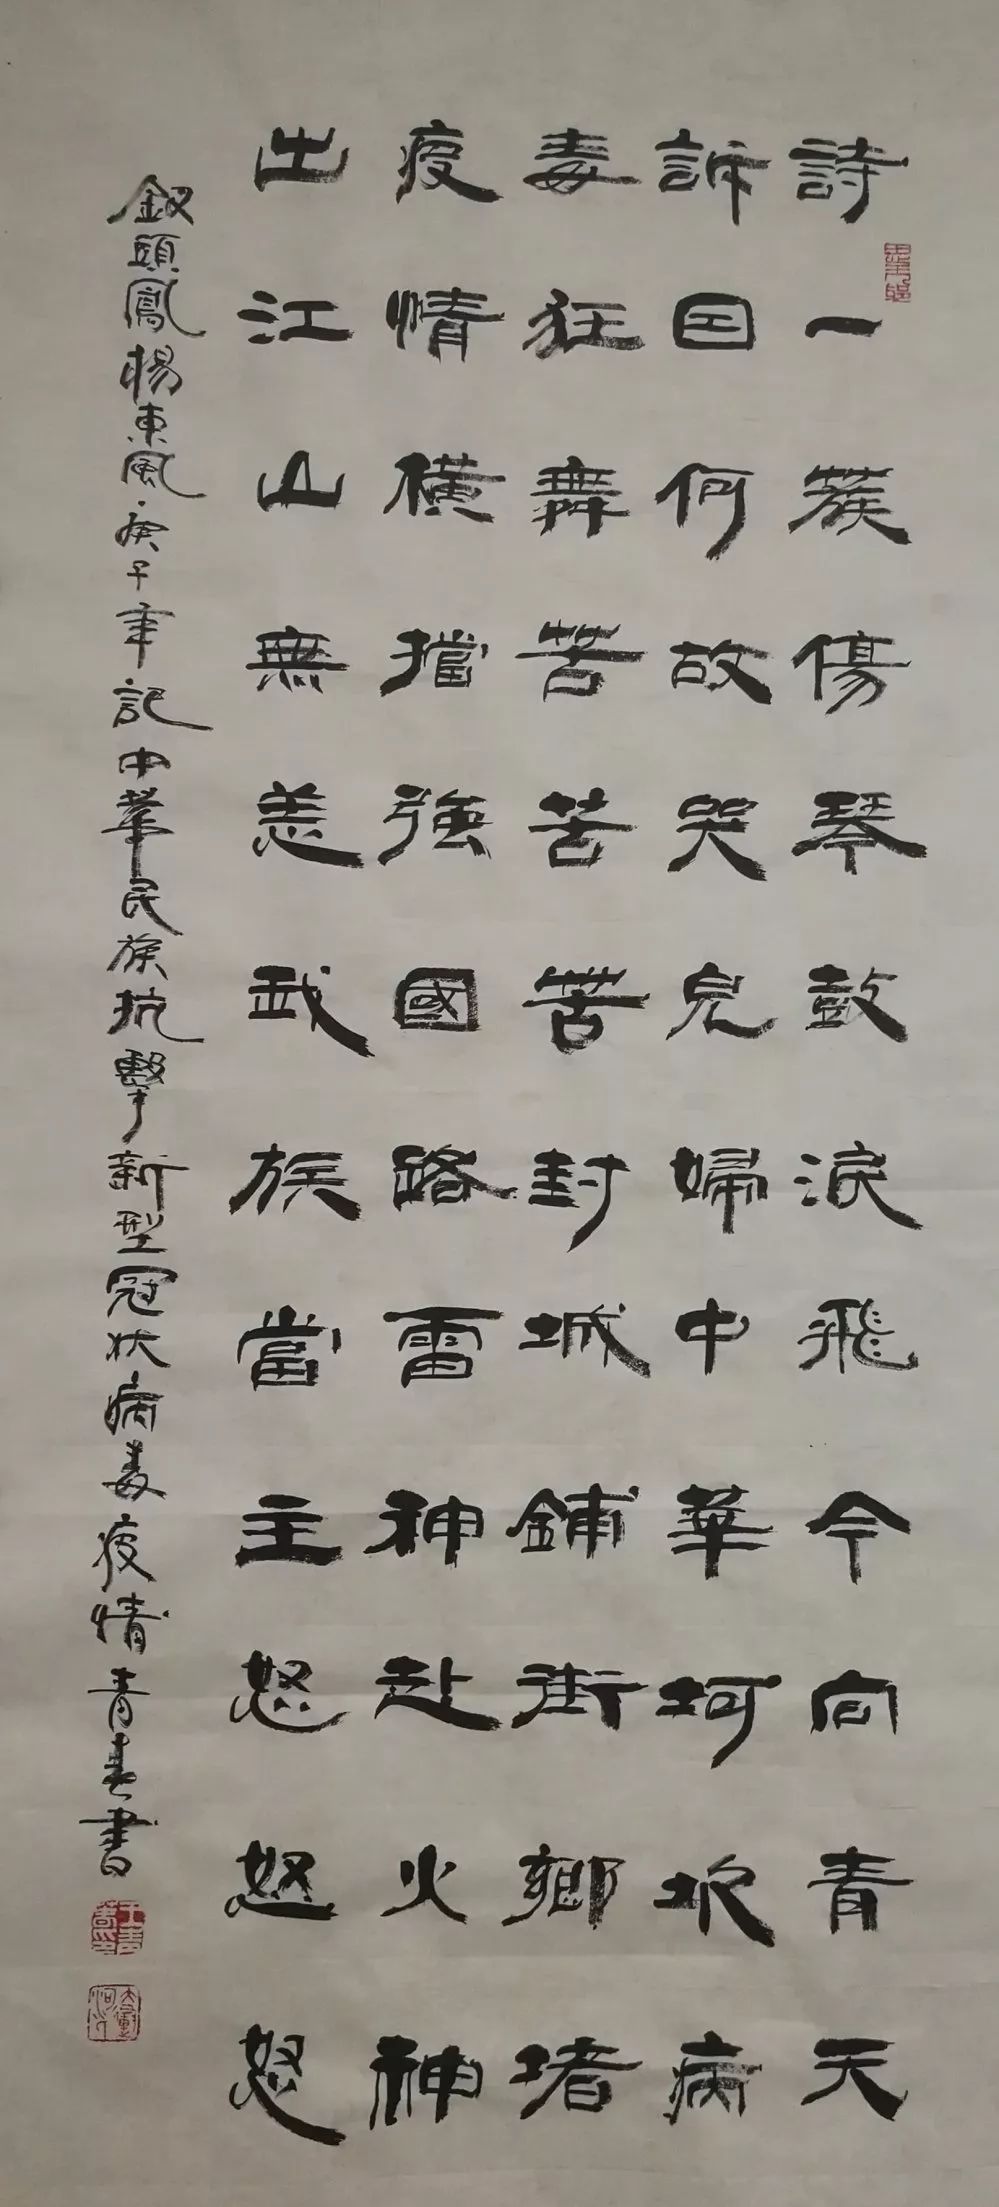 詩一蔟傷琴鼓淚飛今向青天
訴因何故哭兒婦中華坷坎病
毒狂舞苦苦苦封城鋪街鄉堵
疫情橫擋強國路雷神赴火神
出江山無恙武族當主怒怒怒
釵頭鳳惕東風·庚子年記中華民族抗擊新型冠狀病毒疫情青春書